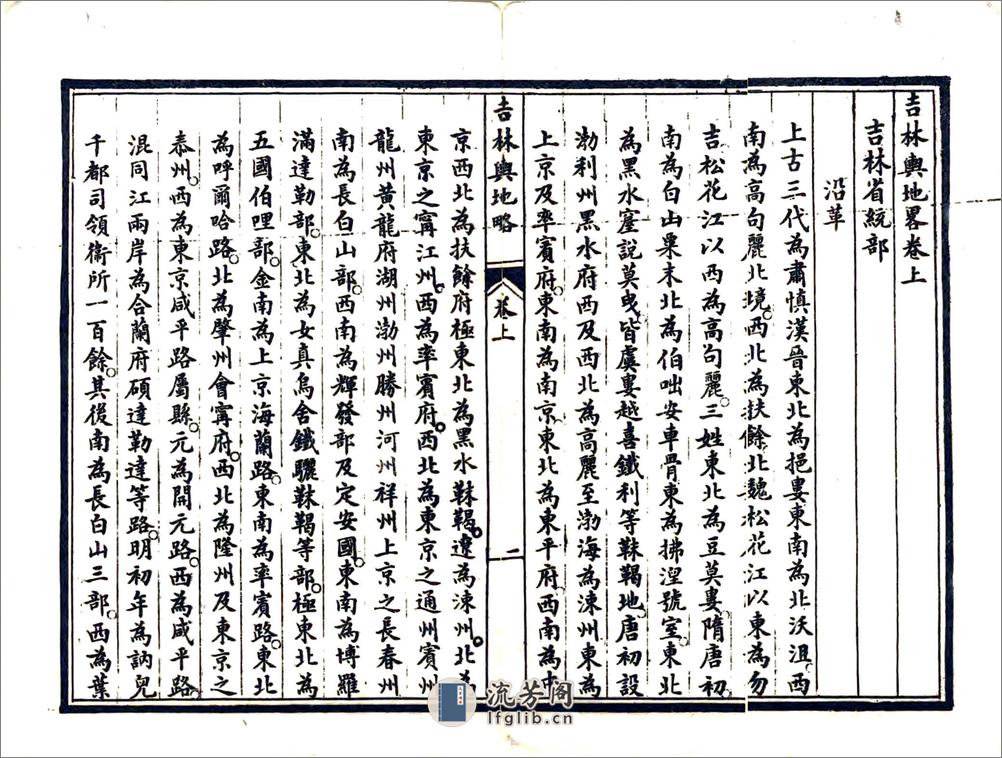 吉林輿地畧卷上
吉林省統部
沿革
上古三代為肅慎漢晉東北為挹婁東南為北沃沮西
南為高句麗北境西北為扶餘北魏松花江以東為勿
吉松花江以西為高句麗三姓東北為豆莫婁隋唐初
南為白山粟末北為伯咄安車骨東為拂涅號室東北
為黑水窟說莫曳皆虞婁越喜鐵利等靺鞨地唐初設
渤利州黑水府西及西北為高麗至渤海為涑州東為
上京及率賓府東南為南京東北為東平府西南為中
吉林輿地略
卷上
二
京西北為扶餘府極東北為黑水靺鞨遼為涑州北為
東京之寗江州西為率賓府西北為東京之通州賓州
龍州黃龍府湖州渤州勝州河州祥州上京之長春州
南為長白山部西南為輝發部及定安國東南為博羅
滿達勒部東北為女真烏舍鐵驪靺鞨等部極東北為
五國伯哩部金南為上京海蘭路東南為率賓路東北
為呼爾哈路北為肇州會寗府西北為隆州及東京之
泰州西為東京咸平路屬縣元為開元路西為咸平路
混同江兩岸為合蘭府碩達勒達等路明初年為訥兒
千都司領衞所一百餘其後南為長白山三部西為葉
流芳阁
lfglib.cn